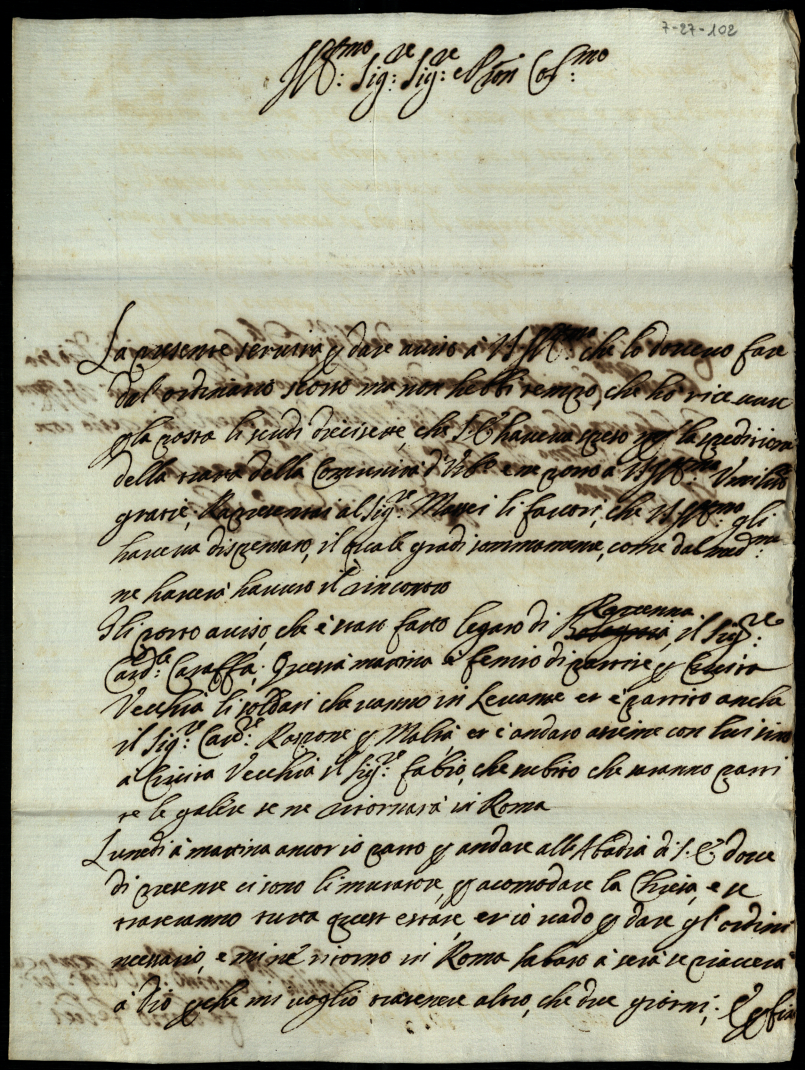 7-27-102
Ill:mo Sig:re Sig:re e Pron Col:mo
La presente servirà p dare aviso à VS Ill:ma che lo dovevo fare
dal' ordinario scorso ma non hebbi tempo, che hò ricevuto
p la posta li scudi diecisette, che S. E. haveva speso p la speditione
della tratta della Comunità d' e ne porto à VS Ill:ma Umilis:e
gratie, Rapresentai al Sig:re Massei li favori, che VS Ill:ma gli
haveva dispensato, il quale gradì sommamente, come dal med:mo
ne haverà havuto il rincontro
Gli porto aviso che è stato fatto legato di Bologna Ravenna, il Sig:re
Card:le Caraffa; Questa mattina è fenito di partire p Civita
Vecchia li soldati che vanno in Levante et è partito anche
il Sig:re Card:le Raspone p Malta, et è andato assieme con lui sino
a Civita Vecchia il Sig:re Fabio, che subito che saranno parti
te le galere se ne ritornarà in Roma
Lunedì à mattina ancor io parto p andare alla Abadia di S. dove
di presente ci sono li muratori, p acomodare la Chiesa, e se
trateranno tutta quest' estate, et io vado p dare gl' ordini
necessarii, e mi ne ritorno in Roma sabato à sera se piacerà
à Dio p che mi voglio tratenere altro, che due giorni; E p fin